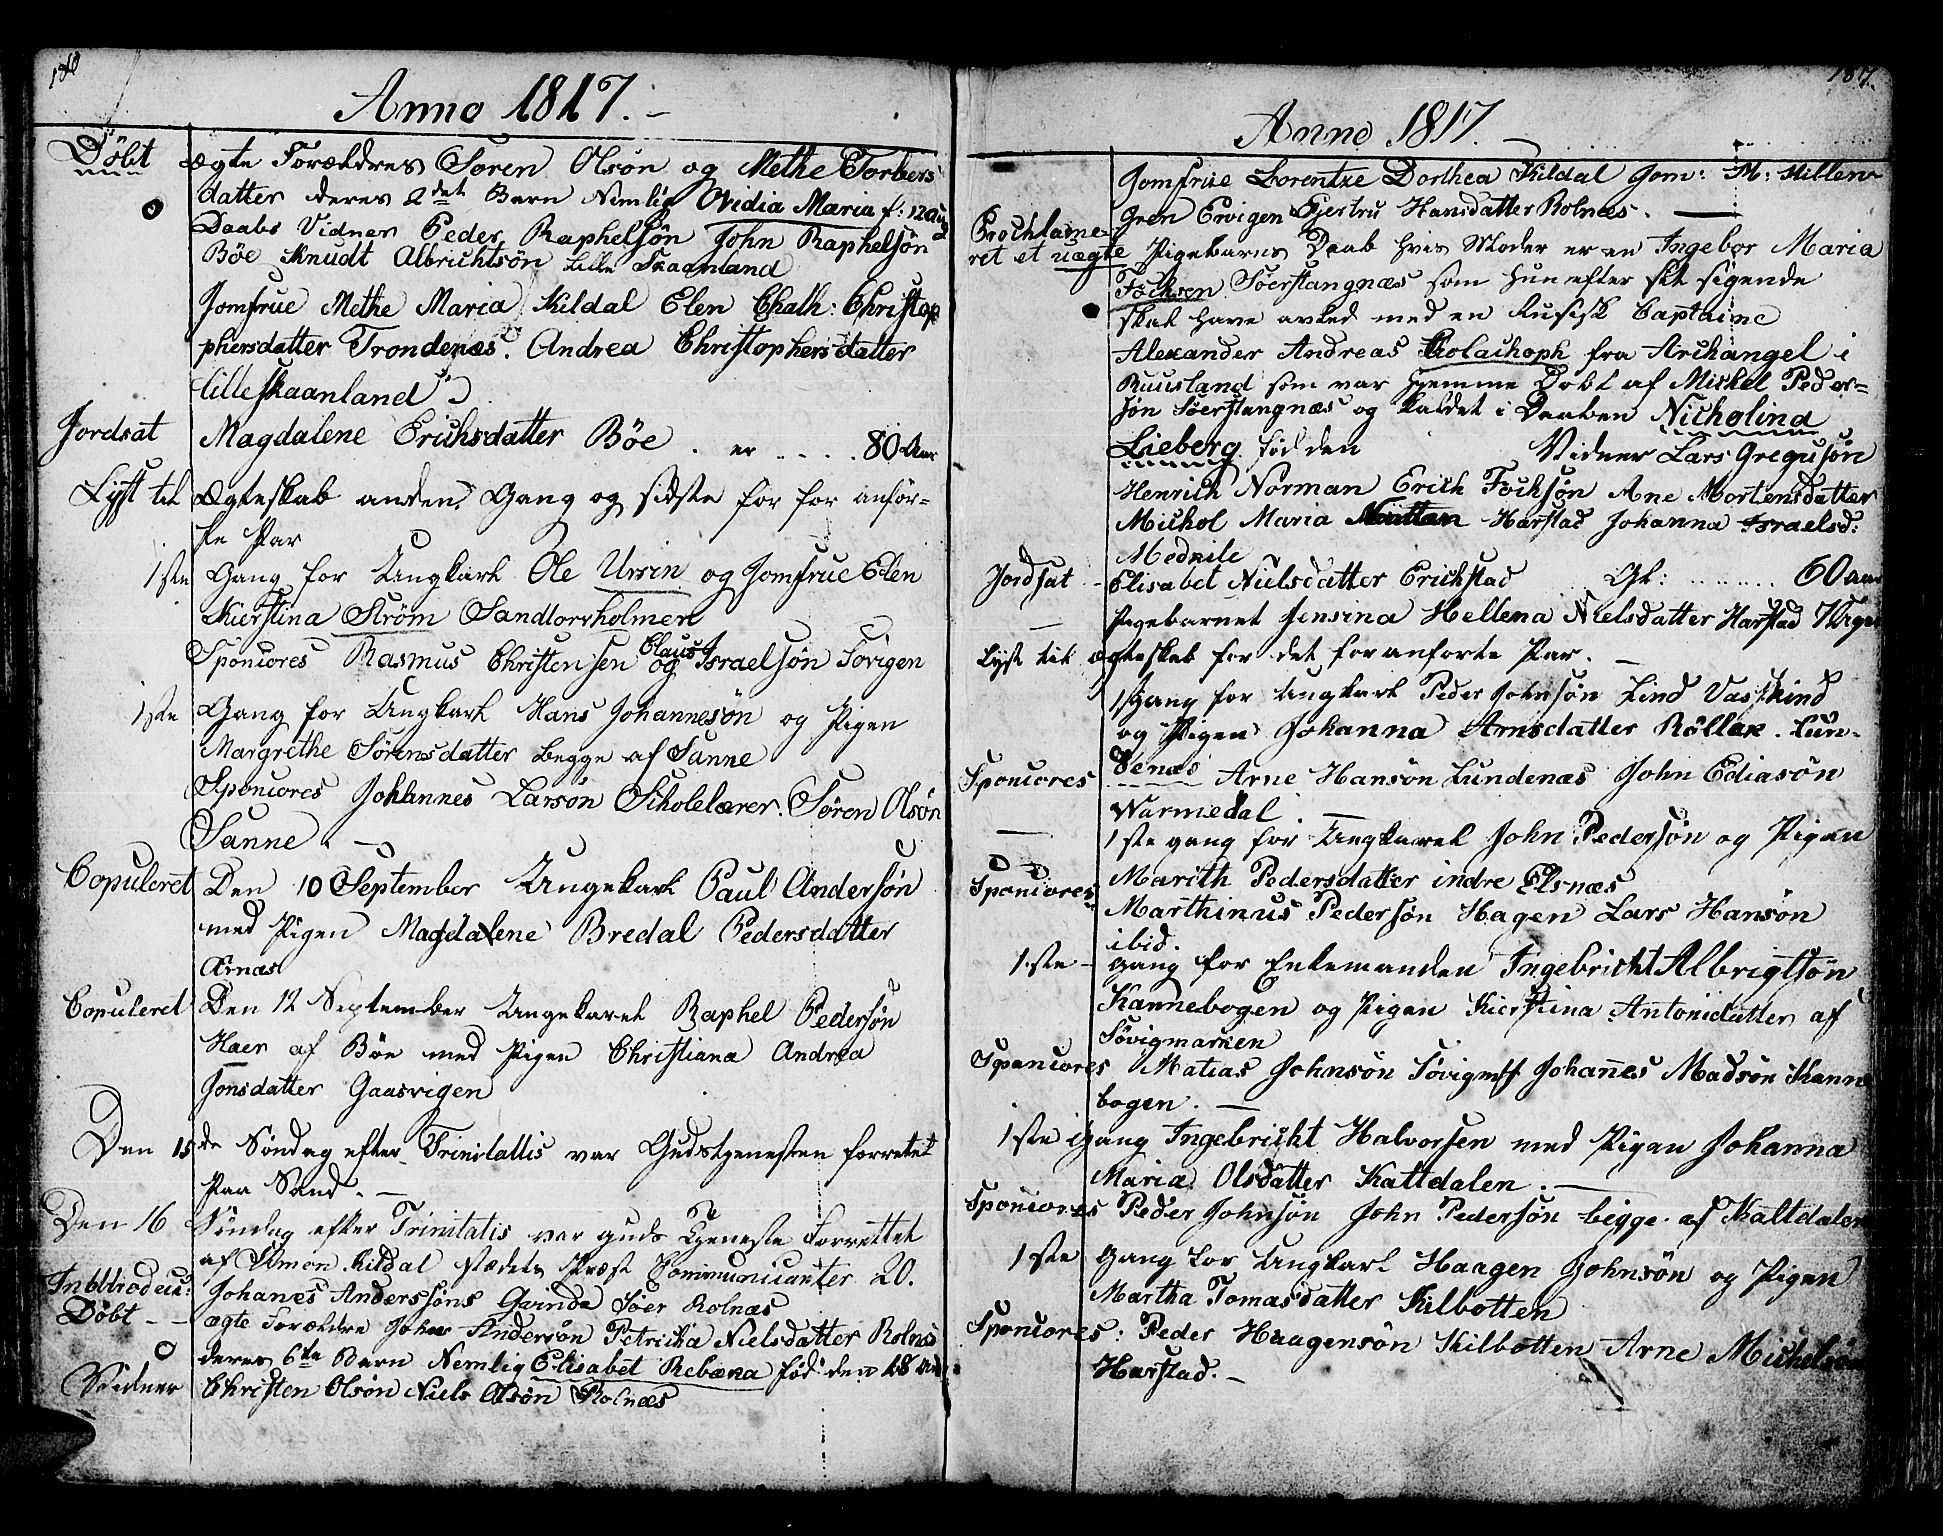 Anno 1817.
Döbt ægte Forældres Sören Olsön og Methe Torbers
datter deres 2det Barn Nemlig Ovidia Maria f: 12 Aug
Daabs Vidner Peder Raphelsön John Raphelsön
Böe Knudt Albrichtsön Lille Skaanland
Jomfrue Methe Maria Kildal Elen Chath: Christop
phersdatter Trondenæs. Andrea Christophersdatter
lilleskaanland
Jordsat Magdalene Erichsdatter Böe . er .... 80 Aar
Lyst til Ægteskab anden Gang og sidste for for anför-
te Par
1ste Gang for Ungkarl Ole Ursin og Jomfrue Elen
Kierstina Ström Sandtorvholmen
Sponsores Rasmus Christensen og Claus Israelsön Sörigen
1ste Gang for Ungkarl Hans Johannesön og Pigen
Margrethe Sörensdatter begge af Sanne
Sponsores Johannes Larsön Skolelærer. Sören Olsön
Sanne.
Copuleret Den 10 September Ungekarl Paul Andersön
med Pigen Magdalene Bredal Pedersdatter
Ærnæs
Copuleret Den 12 September Ungekarel Raphel Pedersön
Haer af Böe med Pigen Christiana Andrea
Jonsdatter Gaasvigen
Den 15de Söndag efter Trinitatis var Gudstjenesten forretet
paa Sand.
Den 16 Söndag efter Trinitatis var Guds Tjeneste Forrettet
af Simon Kildal stædets Præst Communicanter 20.
Introduc: Johanes Anderssöns Qvinde Söer Rolnæs
Döbt - - ægte Forældre John Andersön Petricka Nielsdatter Rolnæs
deres 6te Barn Nemlig Elisabet Rebæna föd den 18 Aug
Vidner Christen Olsön Niels Olsön Rolnæs
187.
Anno 1817.
Jomfrue Lorentze Dorthea Kildal Jom: M: Hillen-
Gren Ervigen Gjertru Hansdatter Rolnæs.
ret et uægte Pigebarns Daab hvis Moder er en Ingebor Maria
Fochsen Söerstangnæs som hun efter sit sigende
skal have avled med en Rusisk Captaine
Alexander Andreas Kolachoph fra Archangel i
Ruusland som var hjemme Döbt af Mickel Peder-
sön Söerstangnæs og kaldet i Daaben Nicholina
Lieberg föd den Vidner Lars Gregusön
Henrich Norman Erich Fochsön Ane Mortensdatter
Michol Maria Harstad Johanna Israelsd:
Medkile
Jordsat - Elisabet Nielsdatter Erichstad Gl: ....... 60 aar
Pigebarnet Jensina Hellema Nielsdatter Harstad
Lyst til ægteskab for det for anforte Par.
1 Gang for Ungkarl Peder Johnsön Lind Vasskind
og Pigen Johanna Arnsdatter Röllax. Lun-
denæs
Sponsores Arne Hansön Lundenæs John Ediasön
Warmedal
1ste gang for Ungkarel John Pedersön og Pigen
Marith Pedersdatter indre Elsnæs
Sponsores Marthinus Pedersön Hagen Lars Hansön
ibid.
1.ste - gang for Enkemanden Ingebricht Albrigtsön
Kannebogen og Pigen Kierstina Antonidatter af
Sövigmarken
Sponsores Matias Johnsön Sövigmk Johañes Madsön Kanne
bogen.
1ste gang Ingebricht Halvorsen med Pigen Johanna
Maria Olsdatter Kattdalen.
Sponsores Peder Johnsön John Pedersön begge af Kaltdalen
1ste gang for Ungkarl Haagen Johnsön og Pigen
Martha Tomasdatter Kilbotten
Sponsores: Peder Haagensön Kilbotten Arne Michelsön
Harstad.